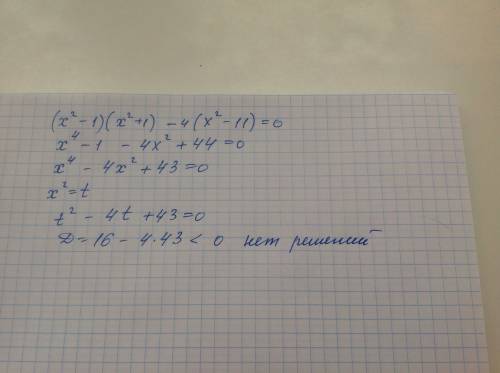 (x² - 1)(x² + 1) - 4(x² - 11) = 0
x⁴ - 1 - 4x² + 44 = 0
x⁴ - 4x² + 43 = 0
x² = t
t² - 4t + 43 = 0
D = 16 - 4·43 < 0 нет решений